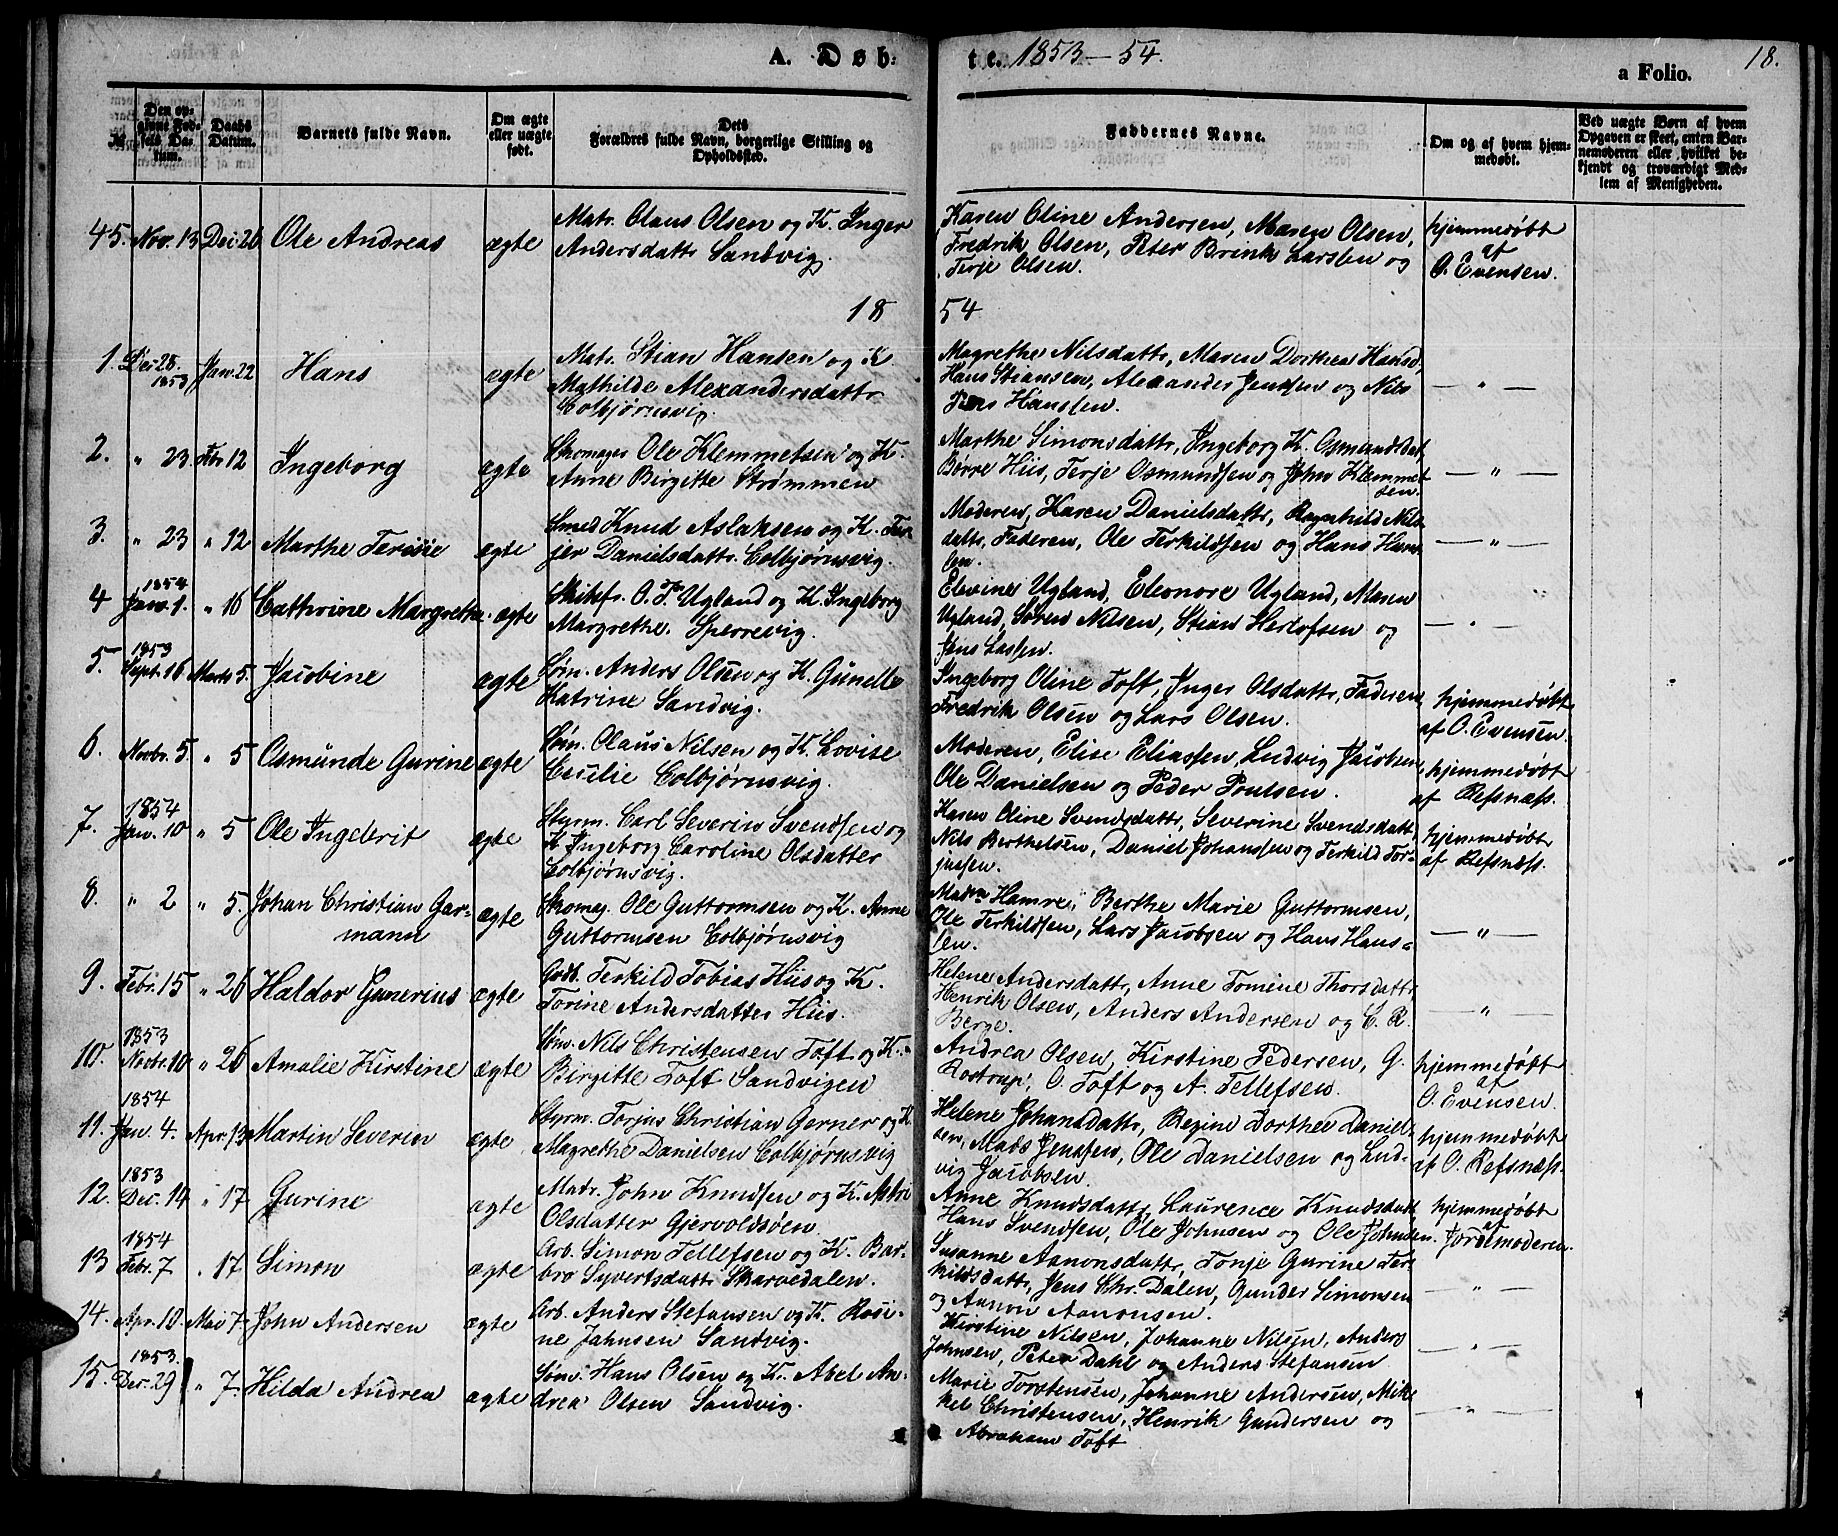 A. Døb:
te. 1853–54.
a Folio.
18.
№
Den opgivne Fødsels Datum.
Daabs Datum.
Barnets fulde Navn.
Om ægte eller uægte født.
Dets Forældres fulde Navn, borgerlige Stilling og Opholdssted.
Faddernes Navne.
Om og af hvem hjemmedøbt.
Ved uægte Børn af hvem Opgaven er skeet, enten Barnemoderen eller hvilket bekjendt og troværdigt Medlem af Menigheden.
45. Nov. 13 Dec. 26 Ole Andreas ægte
Matr. Claus Olsen og K. Inger
Andersdattr Sandvig.
Karen Oline Andersen, Maren Olsen,
Fredrik Olsen, Peter Brink Larssen og
Terje Olsen.
hjemmedøbt
af
O. Evensen.
18 54
1. Dec. 28. 1853 Jan. 22 Hans ægte
Matr. Stian Hansen og K.
Mathilde Alexandersdattr
Colbjørnsvig.
Magrethe Nilsdattr, Maren Dorthea Hansd,
Hans Stiansen, Alexander Jenssen og Nils
Hanssen.
— " —
2. " 23 Febr 12 Ingeborg ægte
Skomager Ole Klemmetsen og K.
Anne Birgitte Strømmen
Marthe Simonsdattr, Ingeborg K. Osmundsdat,
Børre Hiis, Terje Osmundsen og John Klemmet
sen.
— " —
3. " 23 " 12 Marthe Terisie ægte
Smed Knud Aslaksen og K. Ter
jer Danielsdattr. Colbjørnsvig.
Moderen, Karen Danielsdattr, Ragnhild Nils
dattr, Faderen, Ole Terkildsen og Hans Hans
sen.
— " —
4 1854 Jan. 1. " 16 Cathrine Margrethe ægte
Skibsfr. O. T. Ugland og K. Ingeborg
Margrethe. Sperrevig.
Elevine Ugland, Eleonore Ugland, Maren
Ugland, Søren Nilsen, Stian Herlofsen og
Jens Lassen.
— " —
5. 1853 Sept. 16 Marts 5. Jacobine ægte
Søm. Anders Olsen og K. Gunelle
Katrine Sandvig.
Ingeborg Oline Toft, Inger Olsdattr, Faderen,
Fredrik Olsen og Lars Olsen.
hjemmedøbt
af O. Evensen.
6. Novbr. 5. " 5 Osmunde Gurine ægte
Søm. Olaus Nilsen og K. Lovise
Cecilie Colbjørnsvig.
Moderen, Elise Eliassen, Ludvig Jacobsen,
Ole Danielsen og Peder Poulsen.
hjemmedøbt
af Refsnæss.
7. 1854 Jan. 10 " 5 Ole Ingebrit ægte
Styrm. Carl Severin Svendsen og
K. Ingeborg Caroline Olsdatter
Colbjørnsvig.
Karen Oline Svendsdattr, Severine Svendsdatt,
Nils Berthelsen, Daniel Johanssen og Terkild Tor-
jussen.
hjemmedøbt
af Refsnæss.
8. " 2 " 5. Johan Christian Gar-
mann ægte
Skomag. Ole Guttormsen og K. Anne
Guttormsen Colbjørnsvig
Madm Hamre, Berthe Marie Guttormsen,
Ole Terkildsen, Lars Jacobsen og Hans Hans-
sen.
— " —
9. Febr. 15 " 26 Haldor Gunerius ægte
Gdb. Terkild Tobias Hiis og K.
Torine Andersdatter Hiis.
Helene Andersdattr, Anne Tomine Thorsdattr
Henrik Olsen, Anders Andersen og C. R.
Berge.
— " —
10. 1853 Novbr. 10 " 26 Amalie Kirstine ægte
Søm. Nils Christensen Toft og K.
Birgitte Toft Sandvigen
Andrea Olsen, Kirstine Pedersen, G.
Rostrup, O. Toft og A. Tellefsen.
hjemmedøbt
af
O. Evensen.
11. 1854 Jan. 4. Apr. 13 Martin Severin ægte
Styrm. Torjus Christian Gerner og K.
Magrethe Danielsen Colbjørnsvig
Helene Johansdattr, Regine Dorthee Daniel-
sen, Mads Jenssen, Ole Danielsen og Lud-
vig Jacobsen.
hjemmedøbt
af O. Refsnæss.
12. 1853 Dec. 14 " 17 Gurine ægte
Matr. John Knudsen og K. Astri
Olsdatter Gjervoldsøen.
Anne Knudsdattr, Laurence Knudsdatt
Hans Svendsen, Ole Johnsen og Ole Johnsen.
hjemmedøbt
af
Jordemoderen.
13 1854 Febr. 7 " 17 Simon ægte
Arb. Simon Tellefsen og K. Bar-
bro Syvertsdattr Skarvedalen.
Susanne Aanonsdattr, Tonje Gurine Ter-
kildsdattr, Jens Chr. Dalen, Gunder Simonsen
og Aanon Aanonsen.
— " —
14. Apr. 10. Mai 7. John Andersen ægte
Arb. Anders Stefansen og K. Rosi-
ne Jahnsen Sandvig.
Kirstine Nilsen, Johanne Nilsen, Anders
Johnsen, Peter Dahl og Anders Stefansen
— " —
15. 1853. Dec. 29 " 7. Hilda Andrea ægte
Søm. Hans Olsen og K. Abel An-
drea Olsen Sandvig.
Marie Torstensen, Johanne Andersen, Mik-
kel Christensen, Henrik Gundersen og
Abraham Toft
— " —